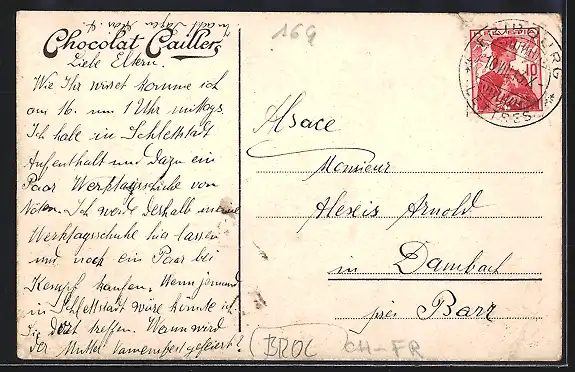 169
Chocolat Cailler
Liebe Eltern.
Wie Ihr wisset komme ich
am 16. um 1 Uhr mittags.
Ich habe in Schlettstadt
Aufenthalt und dazu ein
Paar Werktagsschuhe von
Nöten. Ich werde deshalb meine
Werktagsschuhe hier lassen
und noch ein Paar bei
Kempf kaufen. Wenn jemand
in Schlettstadt wäre könnte ich
Sie dort treffen. Wann wird
der Mutter Namensfest gefeiert?
HELVETIA
10
FRIBOURG
LETTRES
Alsace
Monsieur
Alexis Arnold
in Dambach
près Barr
BROC
CH-FR